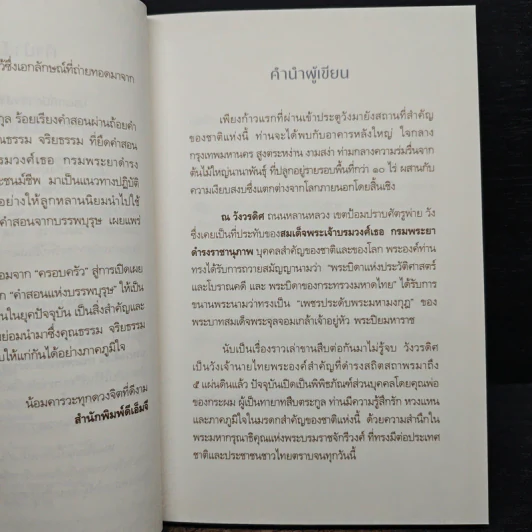 วี้ซึ่งเอกลักษณ์ที่ถ่ายทอดมาจาก
กุล ร้อยเรียงคำสอนผ่านถ้อยคำ
ธรรม จริยธรรม ที่ยึดคำสอน
รมวงศ์เธอ กรมพระยาดำรง
ะชนม์ชีพ มาเป็นแนวทางปฏิบัติ
อย่างให้ลูกหลานนิยมนำไปใช้
คำสอนจากบรรพบุรุษ เผยแพร่
อมจาก “ครอบครัว” สู่การเปิดเผย
“คำสอนแห่งบรรพบุรุษ” ให้เป็น
นในยุคปัจจุบัน เป็นสิ่งสำคัญและ
ย่อมนำมาซึ่งคุณธรรม จริยธรรม
บให้แก่กันได้อย่างภาคภูมิใจ
น้อมคารวะทุกดวงจิตที่ดีงาม
สำนักพิมพ์ดีเอ็มจี
คำนำผู้เขียน
เพียงก้าวแรกที่ผ่านเข้าประตูวังมายังสถานที่สำคัญ
ของชาติแห่งนี้ ท่านจะได้พบกับอาคารหลังใหญ่ ใจกลาง
กรุงเทพมหานคร สูงตระหง่าน งามสง่า ท่ามกลางความร่มรื่นจาก
ต้นไม้ใหญ่นานาพันธุ์ ที่ปลูกอยู่รายรอบพื้นที่กว่า ๑๐ ไร่ ผสานกับ
ความเงียบสงบซึ่งแตกต่างจากโลกภายนอกโดยสิ้นเชิง
ณ วังวรดิศ ถนนหลานหลวง เขตป้อมปราบศัตรูพ่าย วัง
ซึ่งเคยเป็นที่ประทับของสมเด็จพระเจ้าบรมวงศ์เธอ กรมพระยา
ดำรงราชานุภาพ บุคคลสำคัญของชาติและของโลก พระองค์ท่าน
ทรงได้รับการถวายสมัญญานามว่า “พระบิดาแห่งประวัติศาสตร์
และโบราณคดี และ พระบิดาของกระทรวงมหาดไทย” ได้รับการ
ขนานพระนามว่าทรงเป็น “เพชรประดับพระมหามงกุฎ” ของ
พระบาทสมเด็จพระจุลจอมเกล้าเจ้าอยู่หัว พระปิยมหาราช
นับเป็นเรื่องราวเล่าขานสืบต่อกันมาไม่รู้จบ วังวรดิศ
เป็นวังเจ้านายไทยพระองค์สำคัญที่ดำรงสถิตสถาพรมาถึง
๕ แผ่นดินแล้ว ปัจจุบันเปิดเป็นพิพิธภัณฑ์ส่วนบุคคลโดยคุณพ่อ
ของกระผม ผู้เป็นทายาทสืบตระกูล ท่านมีความรู้สึกรัก หวงแหน
และภาคภูมิใจในมรดกสำคัญของชาติแห่งนี้ ด้วยความสำนึกใน
พระมหากรุณาธิคุณแห่งพระบรมราชจักรีวงศ์ ที่ทรงมีต่อประเทศ
ชาติและประชาชนชาวไทยตราบจนทุกวันนี้